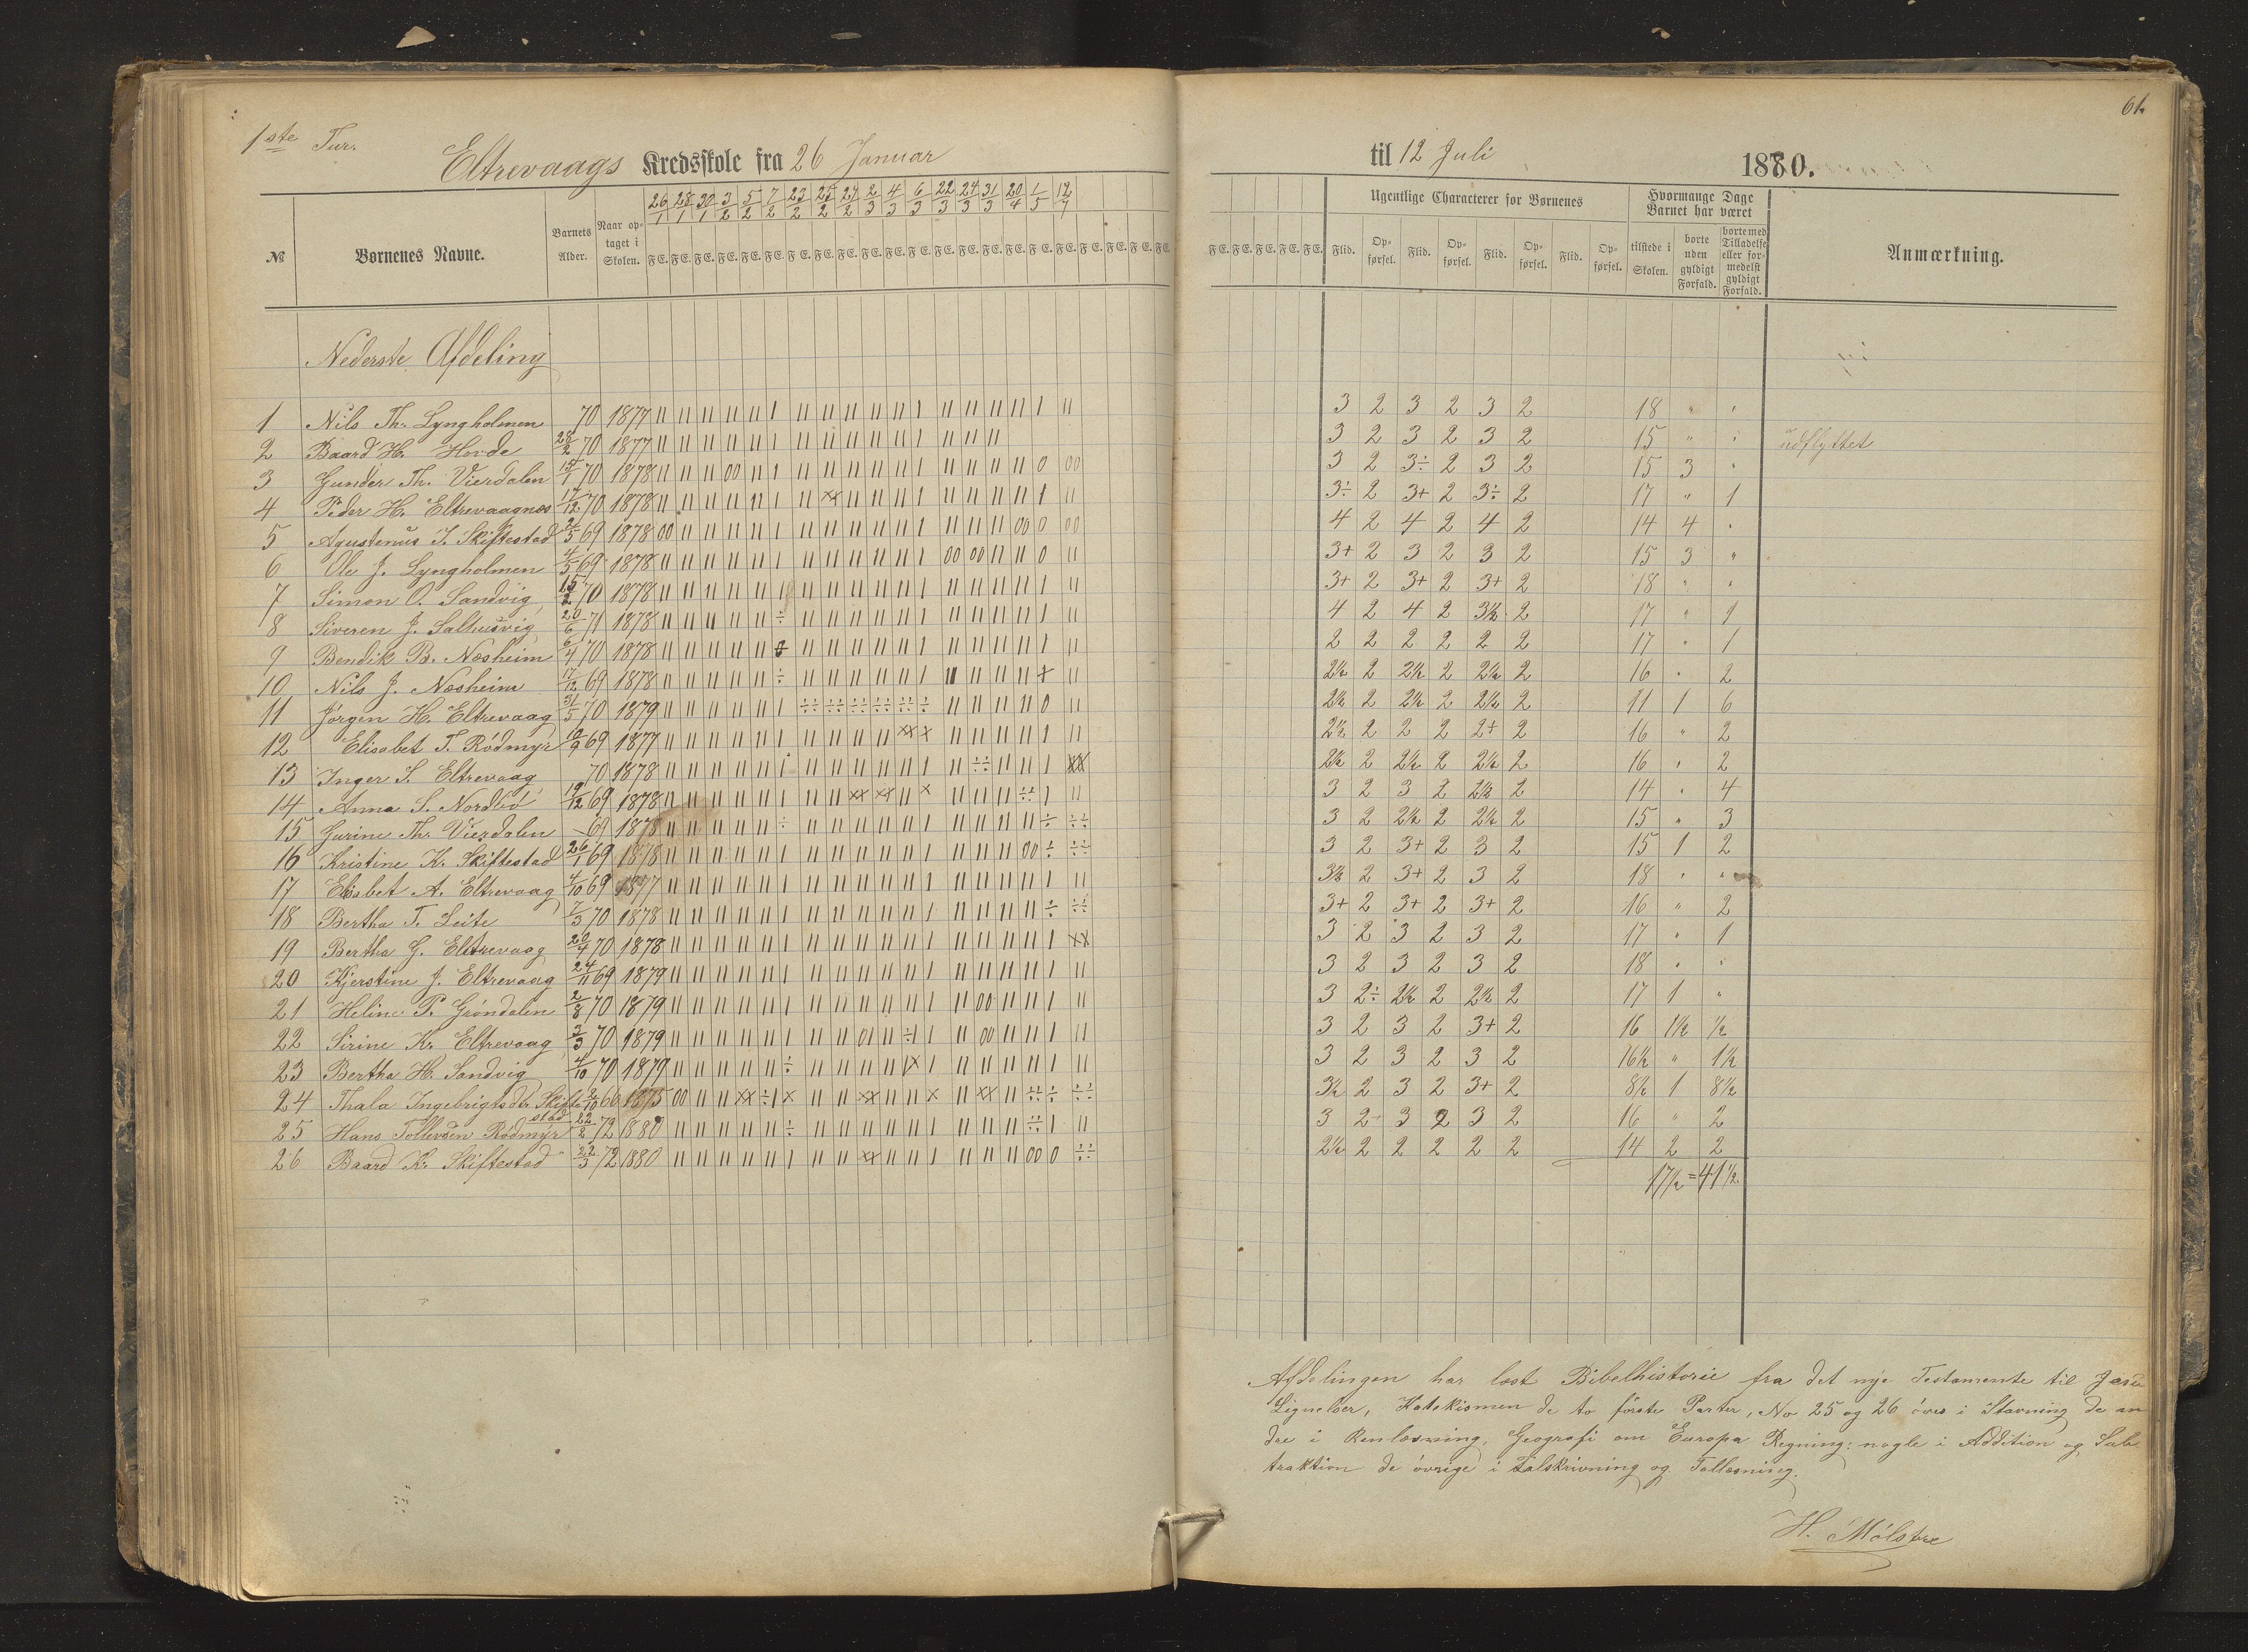 61.
1ste Tur.
Eltrevaags Kredsskole fra 26 Januar til 12 Juli 1880.
№ Børnenes Navne. Barnets Alder. Naar optaget i Skolen. 26/1 28/1 30/1 3/2 5/2 7/2 23/2 25/2 27/2 2/3 4/3 6/3 22/3 24/3 31/3 20/4 1/5 12/7
F.E. F.E. F.E. F.E. F.E. F.E. F.E. F.E. F.E. F.E. F.E. F.E. F.E. F.E. F.E. F.E. F.E. F.E. F.E. F.E. F.E. F.E.
F.E. F.E. F.E. F.E. F.E. Ugentlige Characterer for Børnenes Flid. Opførsel. Flid. Opførsel. Flid. Opførsel. Flid. Opførsel. Hvormange Dage Barnet har været tilstede i Skolen. borte uden gyldigt Forfald. borte med Tilladelse eller formedelst gyldigt Forfald. Anmærkning.
Nederste Afdeling
1 Nils Th. Lyngholmen 70 1877 3 2 3 2 3 2 18 " "
2 Baard H. Hovde 28/2 70 1877 3 2 3 2 3 2 15 " " udflyttet
3 Gunder Th. Vierdalen 15/1 70 1878 3 2 3÷ 2 3 2 15 3 "
4 Peder H. Eltrevaagnes 17/12 70 1878 3÷ 2 3+ 2 3÷ 2 17 " 1
5 Agustenus I. Skiftestad 2/5 69 1878 4 2 4 2 4 2 14 4 "
6 Ole J. Lyngholmen 4/5 69 1878 3+ 2 3 2 3 2 15 3 "
7 Simon O. Sandvig 15/2 70 1878 3+ 2 3+ 2 3+ 2 18 " "
8 Siveren J. Salhusvig 20/6 71 1878 4 2 4 2 3½ 2 17 " 1
9 Bendik B. Næsheim 6/4 70 1878 2 2 2 2 2 2 17 " 1
10 Nils J. Næsheim 17/12 69 1878 2½ 2 2½ 2 2½ 2 16 " 2
11 Jørgen H. Eltrevaag 31/5 70 1879 2½ 2 2½ 2 2½ 2 11 1 6
12 Elisabet T. Rødmyr 10/9 69 1877 2½ 2 2 2 2+ 2 16 " 2
13 Inger S. Eltrevaag 70 1878 2½ 2 2½ 2 2½ 2 16 " 2
14 Anna S. Nordbø 19/12 69 1878 3 2 3 2 2½ 2 14 " 4
15 Gurine Th. Vierdalen 69 1878 3 2 2½ 2 2½ 2 15 " 3
16 Kristine K. Skiftestad 26/1 69 1878 3 2 3+ 2 3 2 15 1 2
17 Elisabet A. Eltrevaag 4/10 69 1877 3½ 2 3+ 2 3 2 18 " "
18 Bertha T. Leite 7/3 70 1878 3+ 2 3+ 2 3+ 2 16 " 2
19 Bertha G. Eltrevaag 20/4 70 1878 3 2 3 2 3 2 17 " 1
20 Kjerstine J. Eltrevaag 24/11 69 1879 3 2 3 2 3 2 18 " "
21 Heline P. Grøndalen 2/8 70 1879 3 2÷ 2½ 2 2½ 2 17 1 "
22 Sirine K. Eltrevaag 2/3 70 1879 3 2 3 2 3+ 2 16 1½ ½
23 Bertha H. Sandvig 4/10 70 1879 3 2 3 2 3 2 16½ " 1½
24 Thala Ingebrigtsdtr Skiftestad 2/10 66 1875 3½ 2 3 2 3+ 2 8½ 1 8½
25 Hans Tollevsen Rødmyr 22/2 72 1880 3 2 3 2 3 2 16 " 2
26 Baard K. Skiftestad 22/3 72 1880 2½ 2 2 2 2 2 14 2 2
17½ = 41½
Afdelingen har læst Bibelhistorie fra det nye Testamente til Jesu
Lignelser, Katekismen de to første Parter, No 25 og 26 øves i Stavning de an
dre i Renlæsning, Geografi om Europa Regning: nogle i Addition og Sub
traktion de øvrige i Talskrivning og Tallæsning.
H. Mølstre